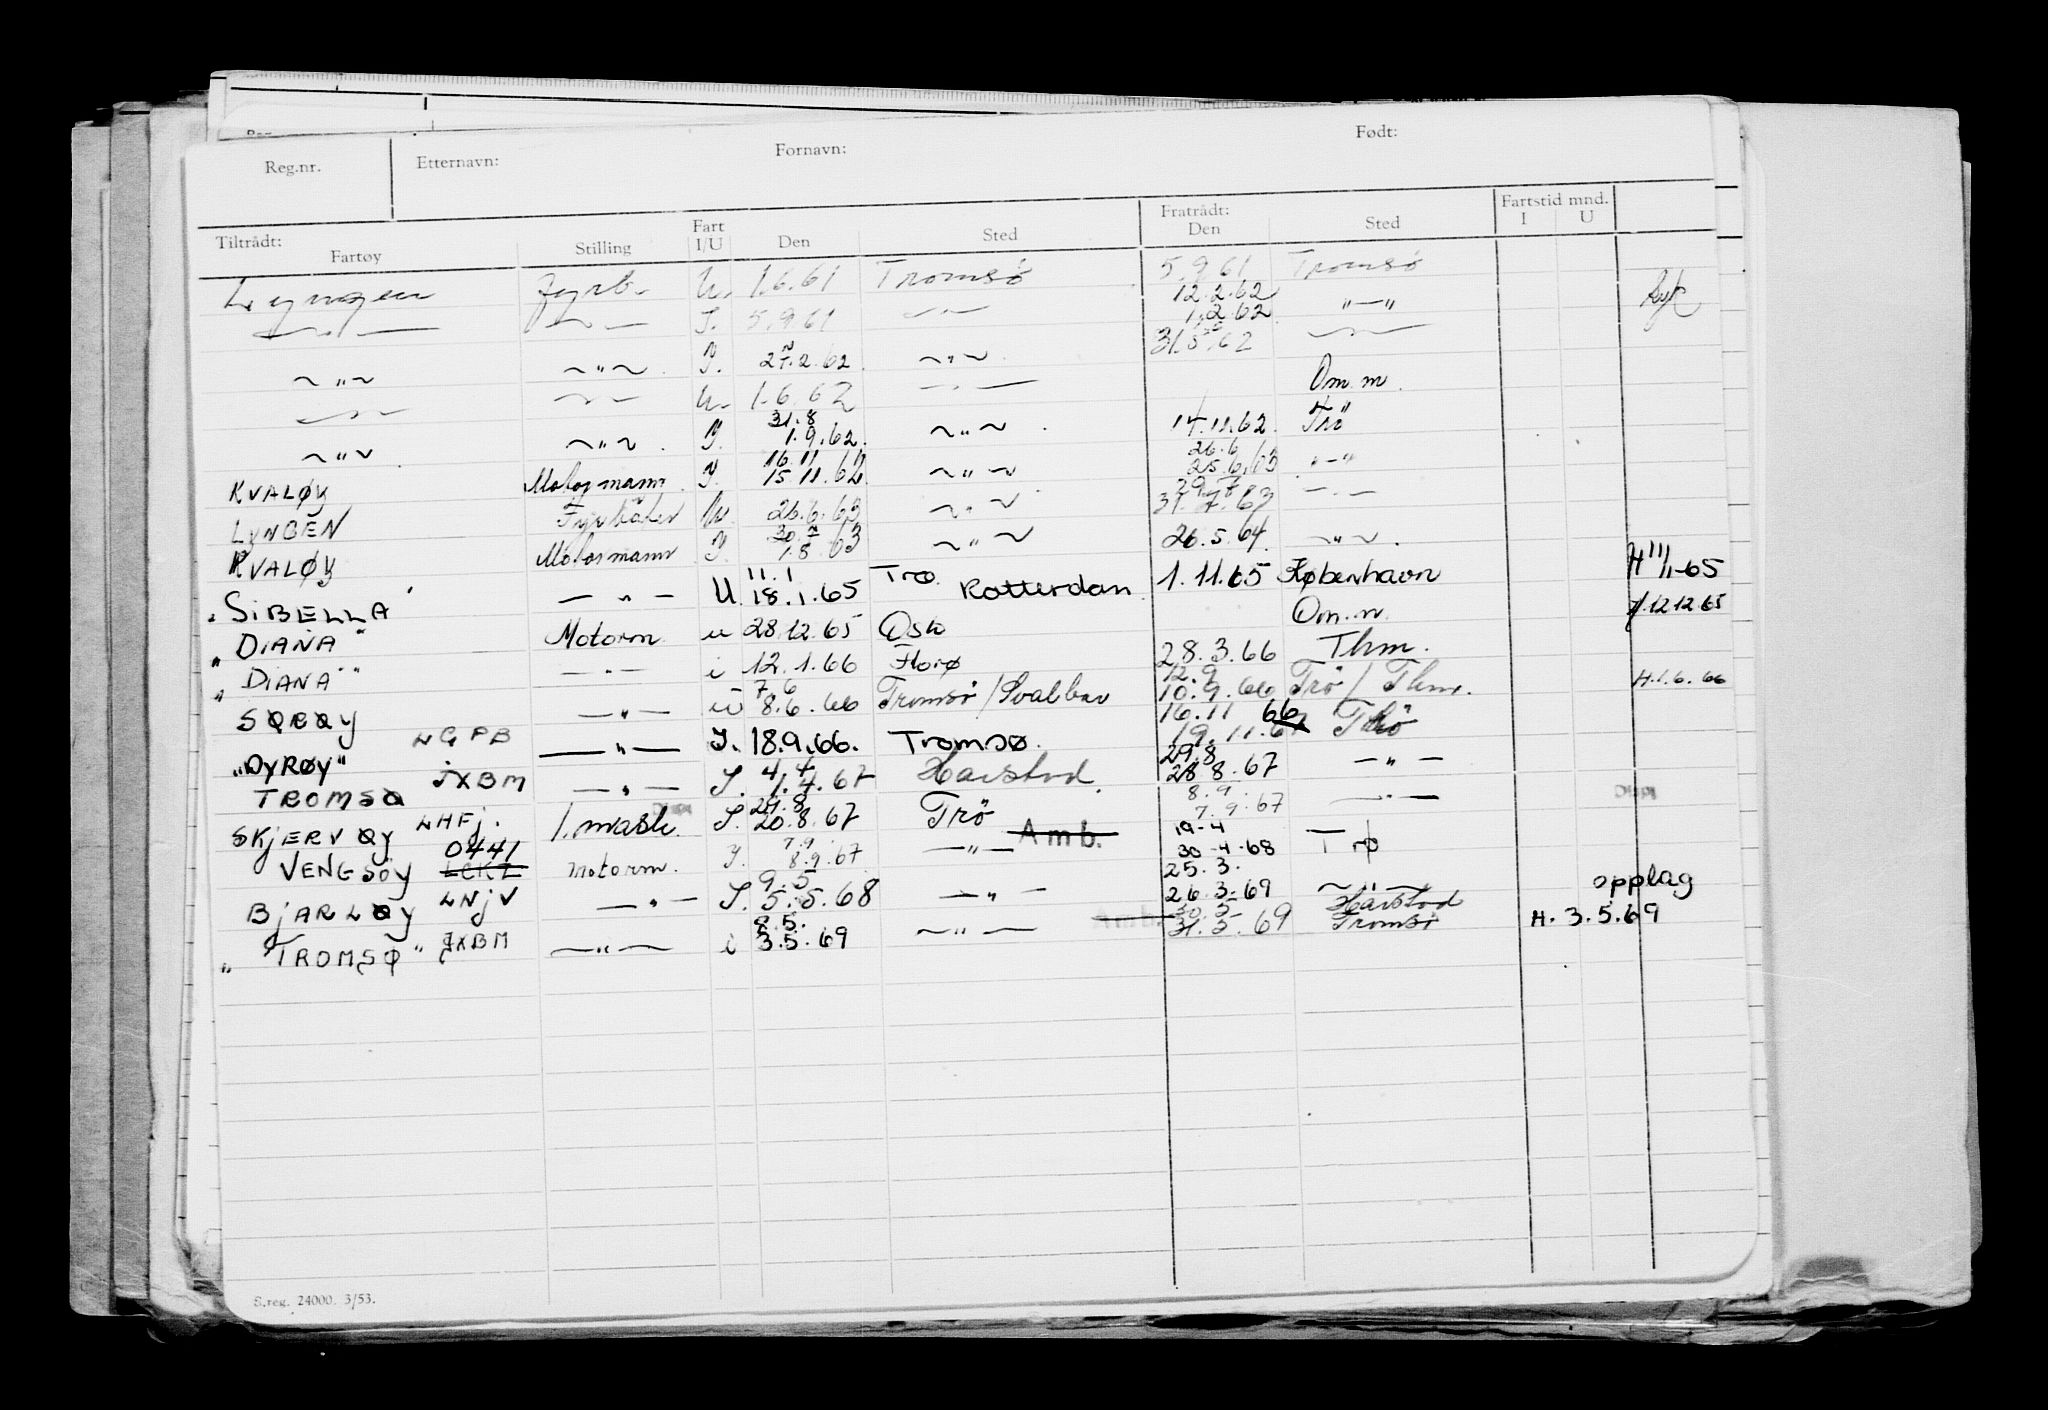 Reg.nr. Etternavn: Fornavn: Født:
Tiltrådt: Fratrådt: Fartstid mnd.
Fartøy Stilling Fart I/U Den Sted Den Sted I U
Lyngen Fyrb. U. 1.6.61 Tromsö 5.9.61 Tromsö
—"— —"— I. 5.9.61 —"— 12.2.62 1.2.62 "—"
~"~ ~"~ I. 27.2.62 ~"~ 31.5.62 —"—
—"— —"— U. 1.6.62 —"— Om.m.
~"~ ~"~ I. 31.8 1.9.62 ~"~ 14.11.62 Trö
KVALØY Motormann I. 16.11 15.11.62 ~"~ 26.6 25.6.63 "—"
LYNGEN Fyrbøter U. 26.6.63 ~"~ 29.7 31.7.63 —"—
KVALØY Motormann I. 30.7 1.8.63 ~"~ 26.5.64 ~"~
"SIBELLA" —"— U 11.1 18.1.65 Trø. Rotterdam 1.11.65 København H 11/11-65
"DIANA" Motorm. u 28.12.65 Oslo Om.m. 12.12.65
"DIANA" —"— i 12.1.66 Florø 28.3.66 Thm.
SØRØY —"— iu 7.6 8.6.66 Tromsö/Svalbar 12.9 10.9.66 Trö/Thm. H.1.6.66
"DYRØY" LGPB —"— I. 18.9.66. Tromsø. 16.11 66 19.11.6 Trö
TROMSØ JXBM —"— I. 4.4 1.4.67 Harstad 29.8 28.8.67 —"—
SKJERVØY LHFJ. 1. mask I. 29.8 20.8.67 Trö 8.9. 7.9.67 —"—
VENGSÖY 0441 motorm. I. 7.9 8.9.67 —"— Amb. 19-4 30-4-68 Trø
BJARLØY LNJV —"— I. 9.5 5.5.68 —"— 25.3. 26.3.69 ~"~ opplag
"TROMSØ" JXBM —"— i 8.5. 3.5.69 ~"— 30.5 31.5.69 Harstad Tromsö H. 3.5.69
S.reg. 24000. 3/53.